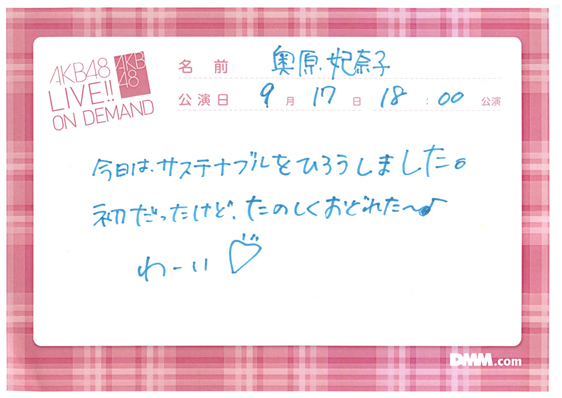 AKB48
LIVE!!
ON DEMAND
AKB
48
名前 奥原.妃奈子
公演日 9月17日 18:00公演
今日は、サステナブルをひろうしました。
初だったけど、たのしくおどれた〜♪
わーい♡
DMM.com